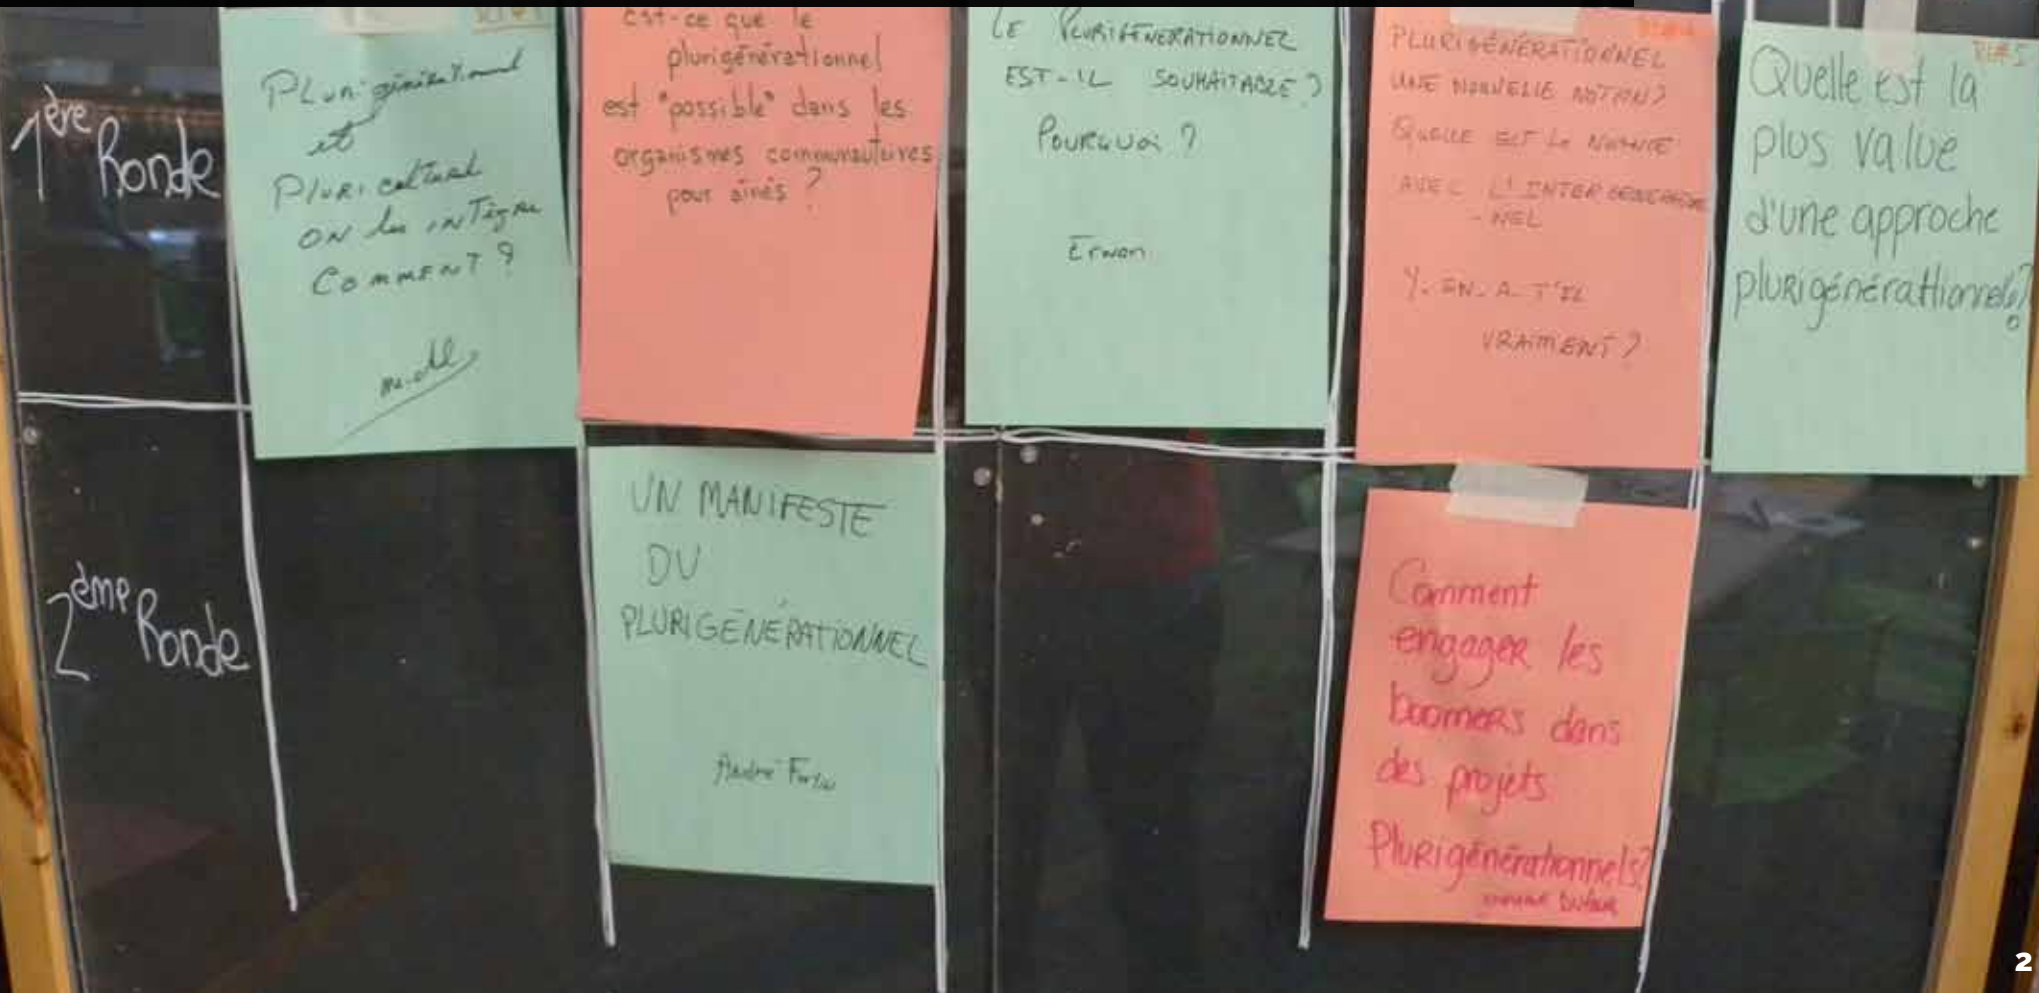 1ère Ronde
Plurigénérationnel
et
Pluriculturel
ON les INTègre
COMMENT ?
Est-ce que le
plurigénérationnel
est "possible" dans les
organismes communautaires
pour aînés ?
LE PLURIGÉNÉRATIONNEL
EST-IL SOUHAITABLE ?
POURQUOI ?
Erwan
PLURIGÉNÉRATIONNEL
UNE NOUVELLE NOTION ?
QUELLE EST LA NUANCE
AVEC L'INTERGENERATION
-NEL
Y-EN-A-T'IL
VRAIMENT ?
Quelle est la
plus value
d'une approche
plurigénérattionnels?
2ème Ronde
UN MANIFESTE
DU
PLURIGÉNÉRATIONNEL
André Fortin
Comment
engager les
boomers dans
des projets
Plurigénérationnels?
Dufour
2